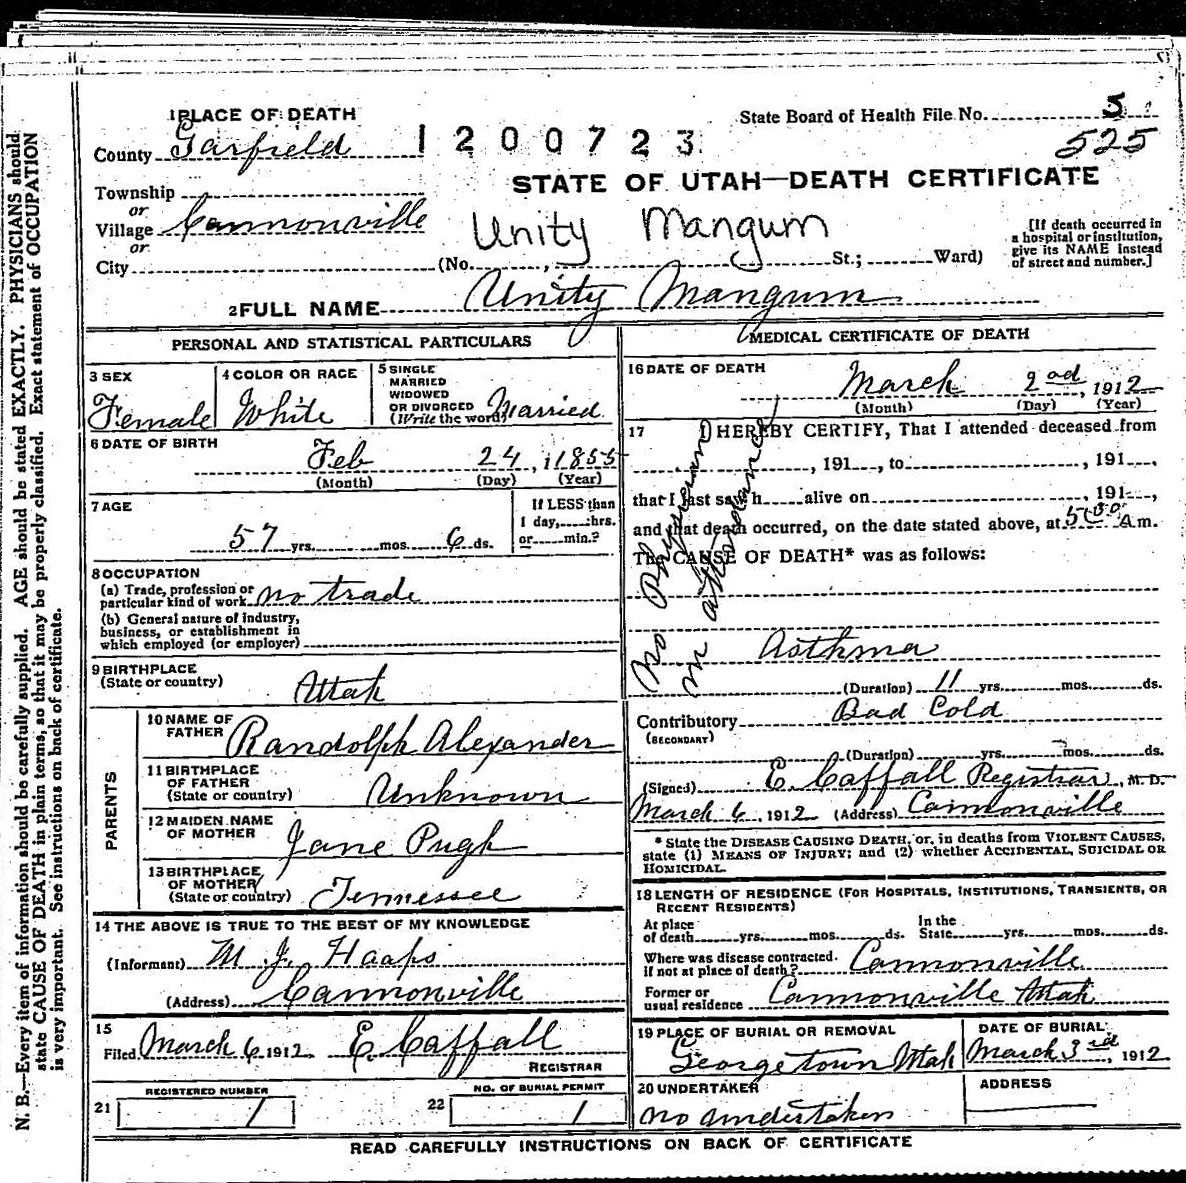 1 PLACE OF DEATH
State Board of Health File No. 5
County Garfield 1200723 525
STATE OF UTAH—DEATH CERTIFICATE
Township
or
Village Cannonville
or
Unity Mangum
City (No. , St.; Ward)
[If death occurred in
a hospital or institution,
give its NAME instead
of street and number.]
2 FULL NAME Unity Mangum
PERSONAL AND STATISTICAL PARTICULARS
3 SEX
Female
4 COLOR OR RACE
White
5 SINGLE
MARRIED
WIDOWED
OR DIVORCED
(Write the word)
Married
6 DATE OF BIRTH
Feb 24, 1855
(Month) (Day) (Year)
7 AGE
57 yrs. mos. 6 ds.
If LESS than
1 day, hrs.
or min.?
8 OCCUPATION
(a) Trade, profession or
particular kind of work no trade
(b) General nature of industry,
business, or establishment in
which employed (or employer)
9 BIRTHPLACE
(State or country)
Uttah
PARENTS
10 NAME OF
FATHER
Randolph Alexander
11 BIRTHPLACE
OF FATHER
(State or country)
Unknown
12 MAIDEN NAME
OF MOTHER
Jane Pugh
13 BIRTHPLACE
OF MOTHER
(State or country)
Tennessee
14 THE ABOVE IS TRUE TO THE BEST OF MY KNOWLEDGE
(Informant) M. J. Haaps
(Address) Cannonville
15
Filed March 6 1912 E. Caffall
REGISTRAR
REGISTERED NUMBER
21 1
NO. OF BURIAL PERMIT
22 1
MEDICAL CERTIFICATE OF DEATH
16 DATE OF DEATH
March 2nd, 1912
(Month) (Day) (Year)
17 I HEREBY CERTIFY, That I attended deceased from
, 191 , to , 191 ,
that I last saw h alive on , 191 ,
and that death occurred, on the date stated above, at 5:30 A m.
The CAUSE OF DEATH* was as follows:
No Physician
in attendance
Asthma
(Duration) 11 yrs. mos. ds.
Contributory Bad Cold
(SECONDARY)
(Duration) yrs. mos. ds.
(Signed) E. Caffall Registrar, M. D.
March 6, 1912 (Address) Cannonville
* State the DISEASE CAUSING DEATH, or, in deaths from VIOLENT CAUSES,
state (1) MEANS OF INJURY; and (2) whether ACCIDENTAL, SUICIDAL OR
HOMICIDAL.
18 LENGTH OF RESIDENCE (FOR HOSPITALS, INSTITUTIONS, TRANSIENTS, OR
RECENT RESIDENTS)
At place
of death yrs. mos. ds.
In the
State yrs. mos. ds.
Where was disease contracted.
if not at place of death? Cannonville
Former or
usual residence Cannonville Uttah
19 PLACE OF BURIAL OR REMOVAL
Georgetown Uttah
DATE OF BURIAL
March 3rd, 1912
20 UNDERTAKER
no undertaken
ADDRESS
READ CAREFULLY INSTRUCTIONS ON BACK OF CERTIFICATE
N. B.—Every item of information should be carefully supplied. AGE should be stated EXACTLY. PHYSICIANS should
state CAUSE OF DEATH in plain terms, so that it may be properly classified. Exact statement of OCCUPATION
is very important. See instructions on back of certificate.